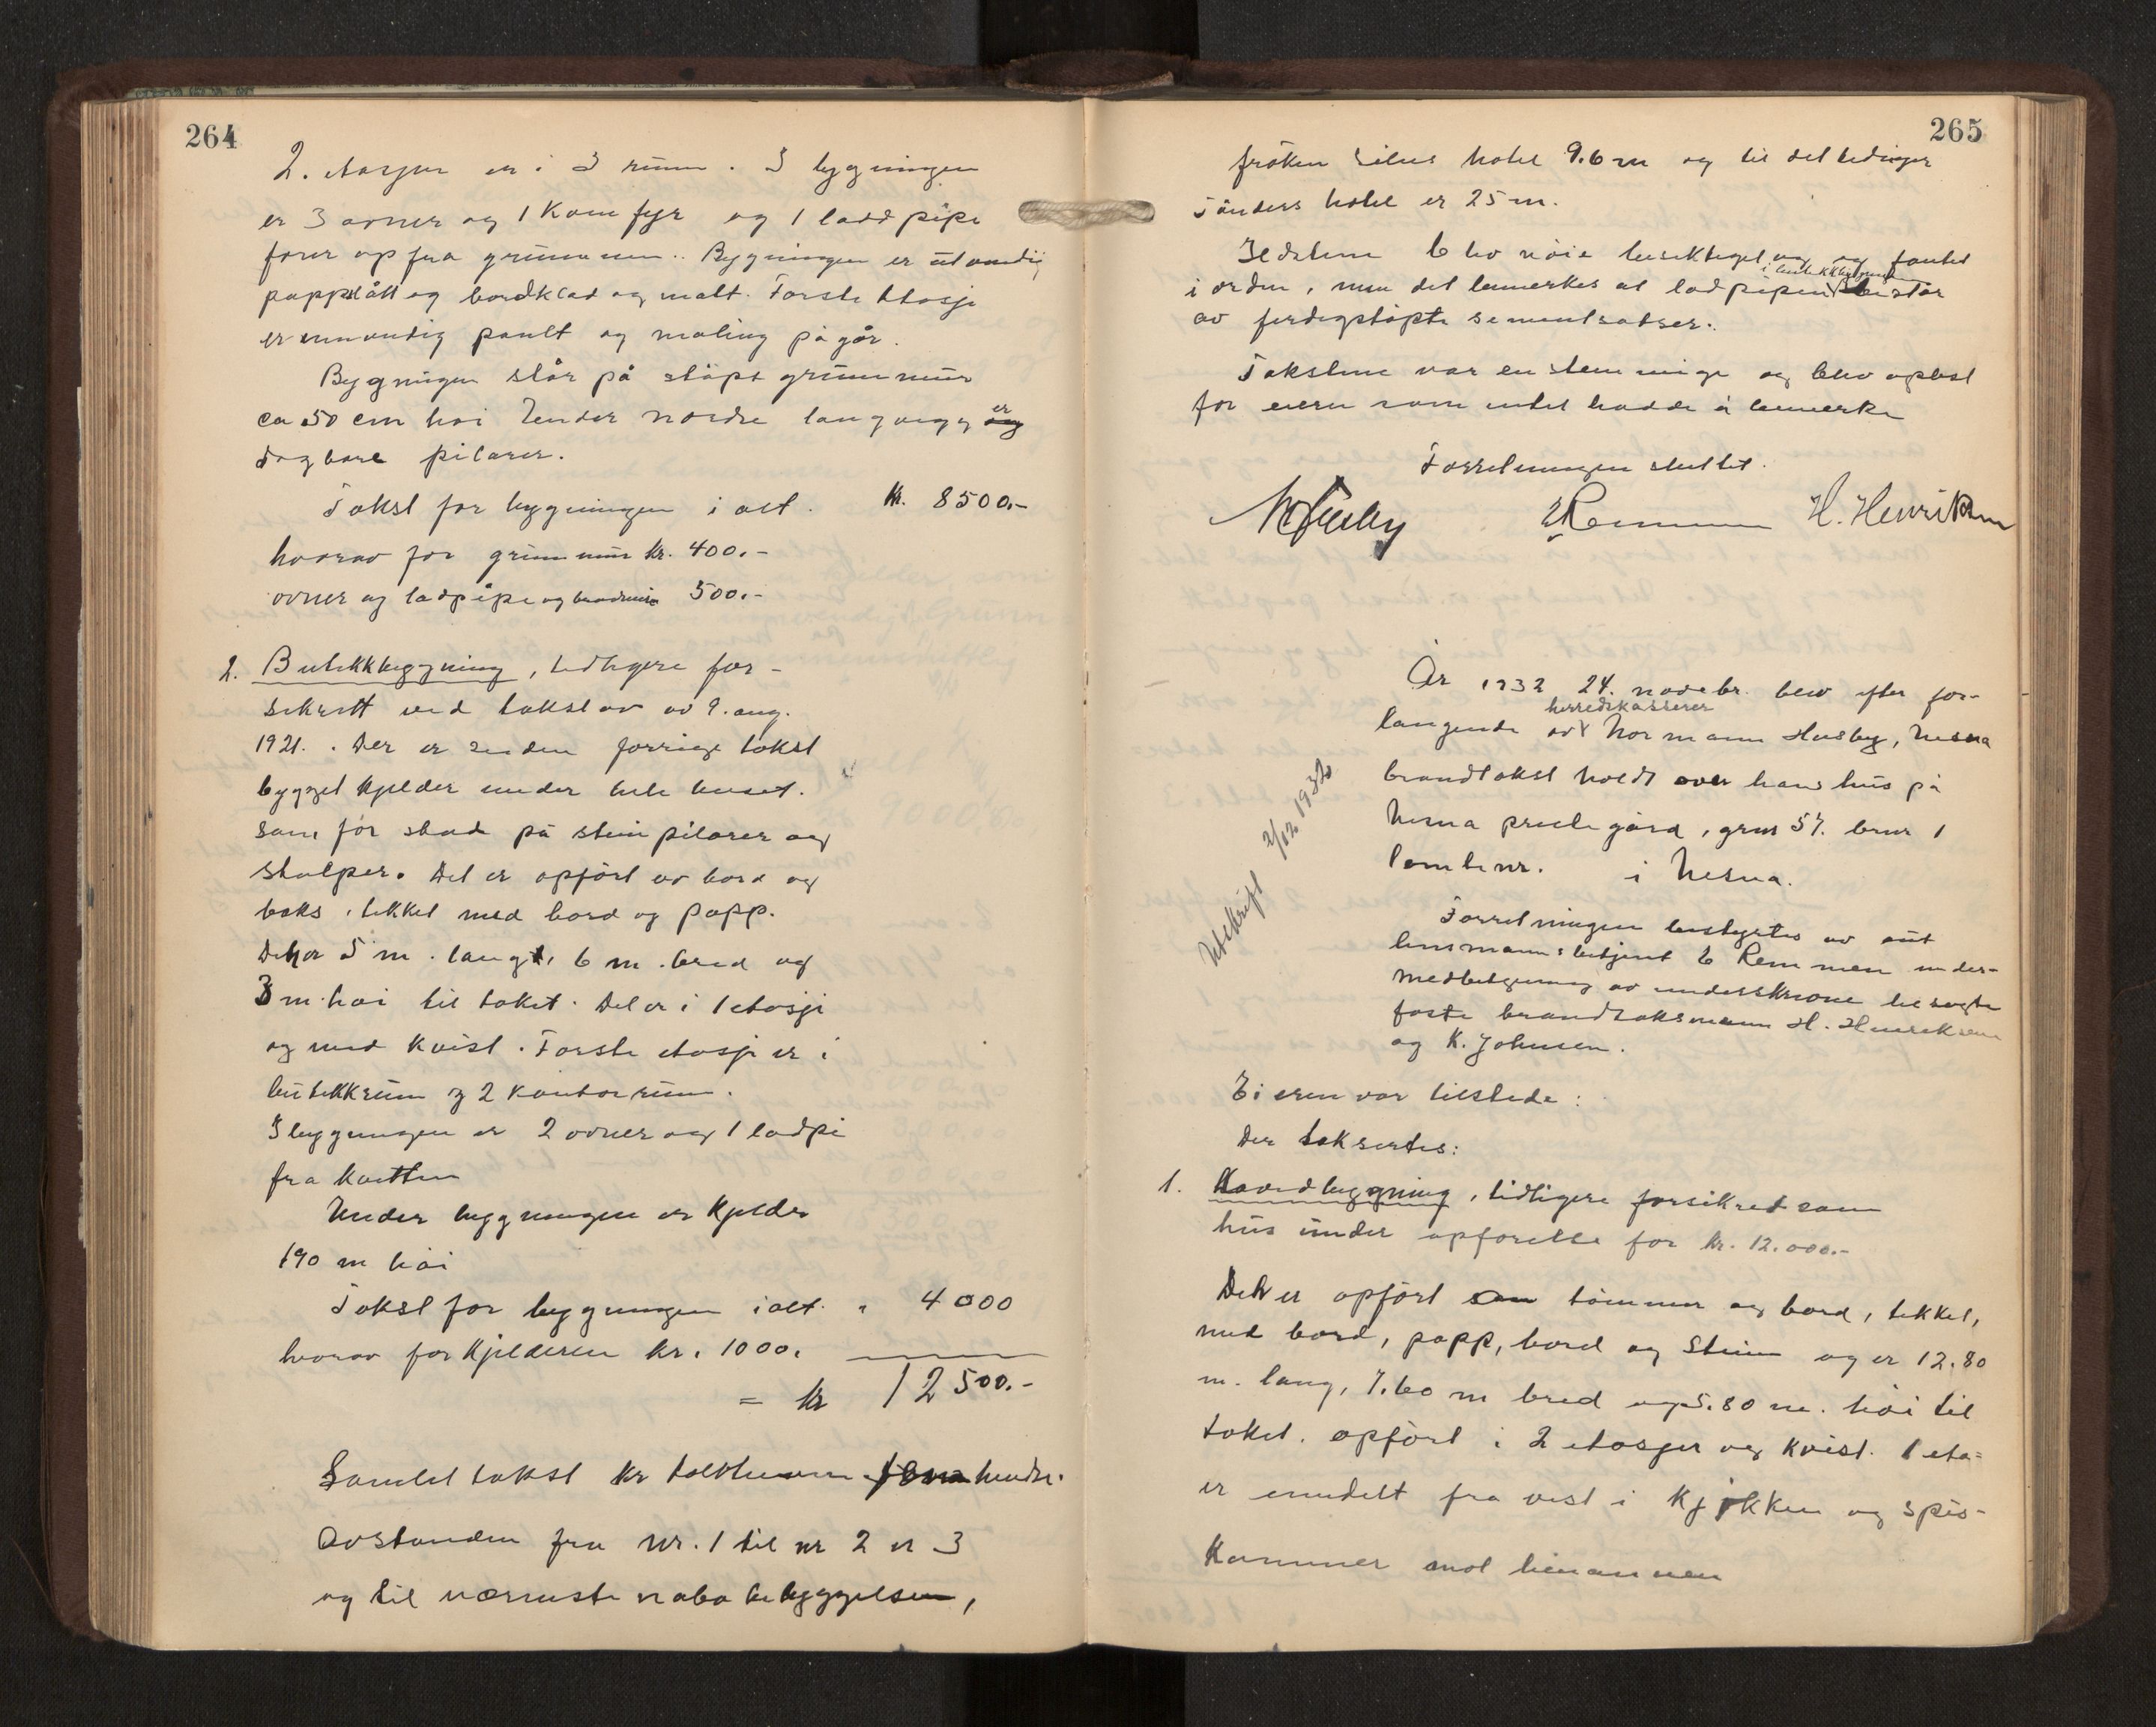 264
2. etasjen er i 3 rum. I bygningen
er 3 ovner og 1 Komfyr og 1 ladd pipe
fører op fra grunmuren. Bygningen er utvendig
pappslått og bordklæd og malt. Første Etasje
er innvendig panlt og maling pågår.
Bygningen står på støpt grunnmur
ca 50 cm høi Under nordre langvegg er
dog bare pilarer.
Takst for bygningen i alt. kr. 8500.-
hvorav for grunnmur kr. 400.-
ovner og ladpipe og brandmur 500.-
2. Butikkbygning, tidligere for-
sikrett ved takst av 9. aug.
1921. Der er siden forrige takst
bygget kjelder under hele huset.
som før stod på steinpilarer og
stolper. Det er opført av bord og
boks, tekket med bord og papp.
Det er 5 m. langt, 6 m. bred og
3 m høi til taket. Det er i 1 etasje
og med kvist. Første etasje er i
butikkrum og 2 kontorrum.
I bygningen er 2 ovner og 1 ladpi
fra
Under bygningen er kjelder
190 m høi
Takst for bygningen ialt. " 4000
hvorav for kjelderen kr. 1000.
= kr 12500.-
Samlet takst kr tolvtusen fem hundre.
Avstanden fra nr. 1 til nr 2 er 3
og til nærmeste nabobebyggelsen,
265
frøken hotel 9.6 m og til
hotel er 25 m.
Ildstene blev nøie besiktiget og fantes
i butikkbygningen
i orden, men det bemerkes at ladpipen består
av ferdigstøpte sementsatser.
Takstene var enstemmige og blev oplest
for eieren som intet hadde å bemerke
Forretningen sluttet.
N Husby E Remmen H. Henriksen
År 1932 24. novebr. blev efter for-
herredskasserer
langende av Normann Husby, Nesna
brandtakst holdt over hans hus på
Nesna prestegård, grnr 57. brnr 1
tomtenr. i Nesna.
Utskrift 2/12 1932
Forretningen bestyrtes av aut
lensmannsbetjent E Remmen under
medbetjening av underskrevne tilsagte
faste brandtaksmenn H. Henriksen
og K. Johnsen.
Eieren var tilstede:
Der taksertes:
1. Hovedbygning, tidligere forsikret som
hus under opførelse for kr. 12.000.-
Det er opført tømmer og bord, tekket,
med bord, papp, bord og Stein og er 12.80
m. lang, 7.60 m bred og 5.80 m. høi til
taket. opført i 2 etasjer og kvist. 1 eta-
er inndelt fra vest i kjøkken og spis-
kammer mot